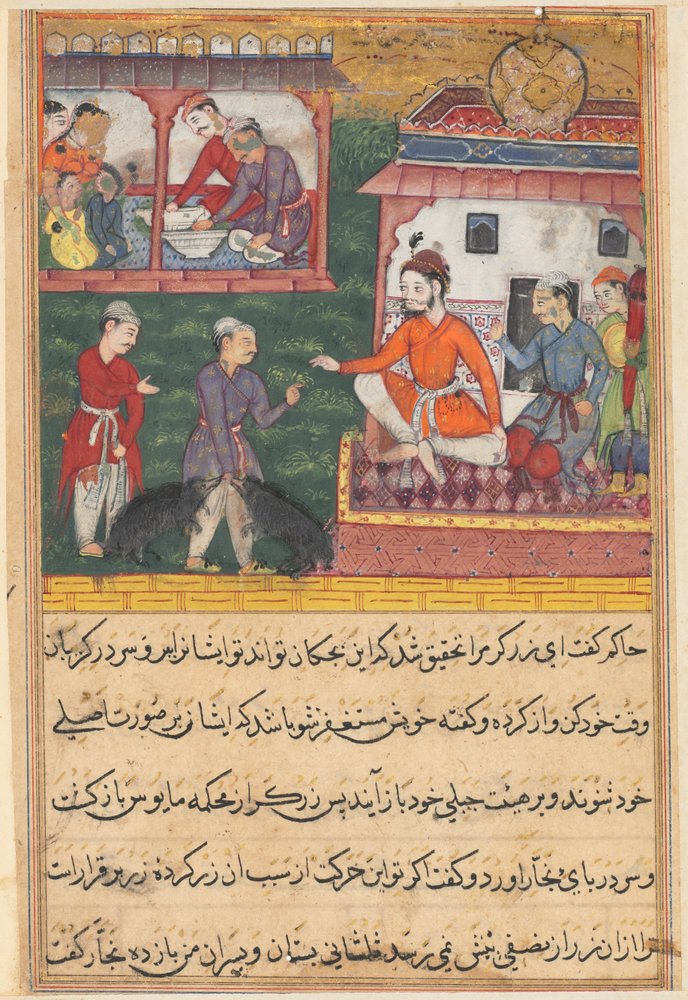 حاکم کفت ای زرکر مرا تحقیق شد که این بچکان تواند تو ایشانرا بس و سر در کریبان
وقت خود کن و از کرده و کفته خویش مستغفر شو باشد که ایشان بر صورت اصلی
خود شوند و بر هیئت جبلی خود باز آیند بس زرکر از محکمه مایوس باز کشت
و سر در بای نجار اورد و کفت اکر تو این حرکت از سبب ان زر کردهٔ زر برقرار است
مرا از ان زر از نصفی بیش نمی رسد ثلثانی بستان و بسران من باز ده نجار کفت